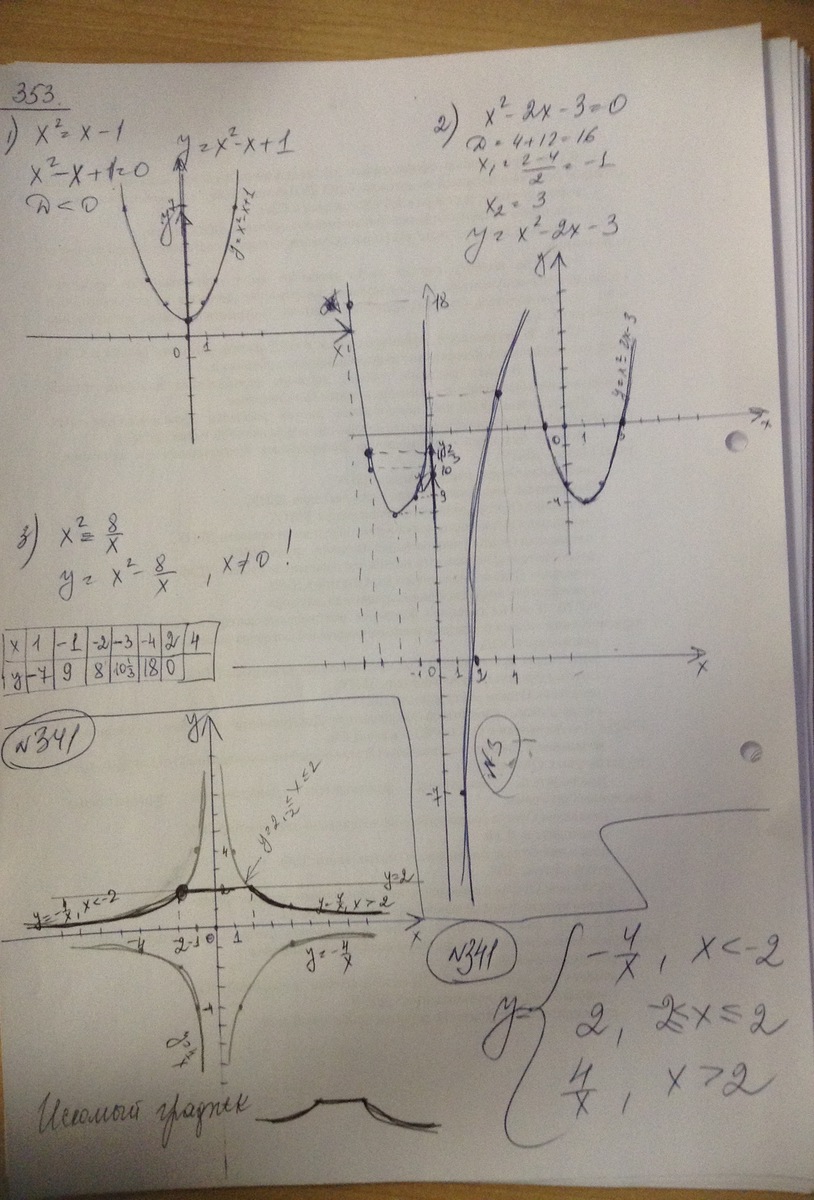 353.
1) x² = x - 1
x² - x + 1 = 0
D < 0
y = x² - x + 1
y
y = x² - x + 1
0 1
x
2) x² - 2x - 3 = 0
D = 4 + 12 = 16
x₁ = (2-4)/2 = -1
x₂ = 3
y = x² - 2x - 3
y
y = x² - 2x - 3
0 1 3
-4
x
3) x² = 8/x
y = x² - 8/x , x ≠ 0 !
x 1 -1 -2 -3 -4 2 4
y -7 9 8 10⅓ 18 0
18
10
9
-1 0 1 2 4
x
-7
N3
N341
y
y = 2, -2 ≤ x ≤ 2
4
y = 2
2
y = -4/x, x < -2
y = 4/x, x > 2
-4 2 -1 0 1
x
y = -4/x
-4
N341
y = { -4/x , x < -2
2 , -2 ≤ x ≤ 2
4/x , x > 2
Искомый график